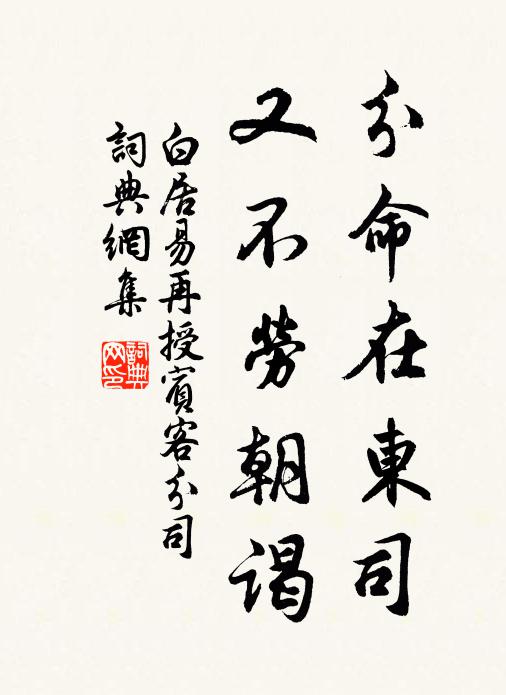 分命在東司
又不勞朝謁
白居易再授賓客分司
詞典網集
詞典網印